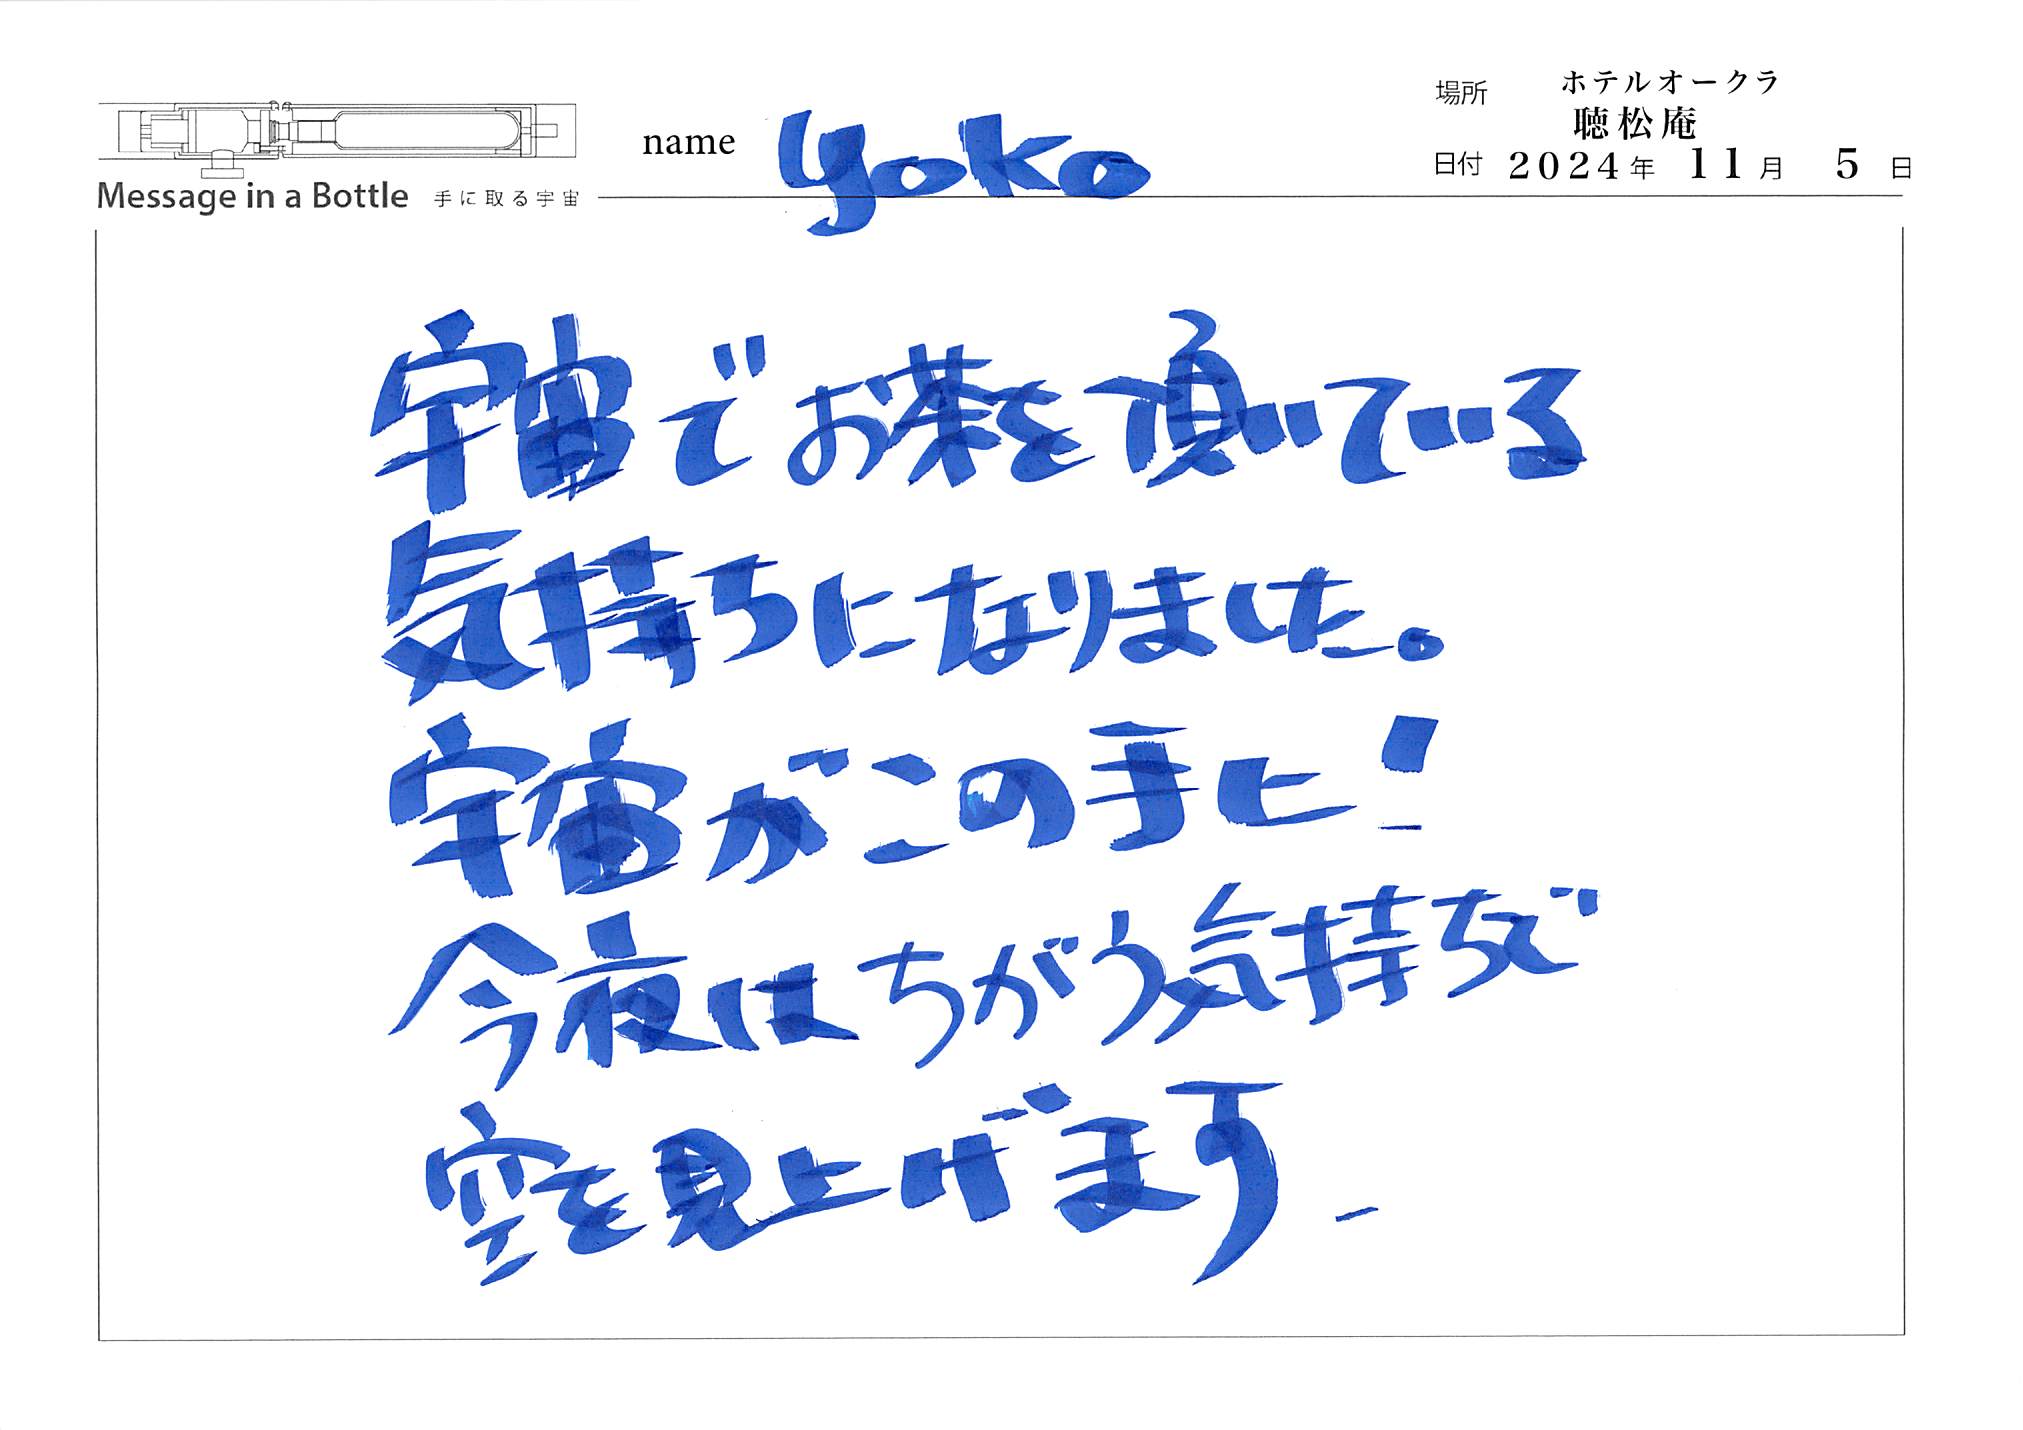 Message in a Bottle 手に取る宇宙
name yoko
場所 ホテルオークラ
聴松庵
日付 2024年 11月 5日
宇宙でお茶を頂いている
気持ちになりました。
宇宙がこの手に!
今夜はちがう気持ちで
空を見上げます